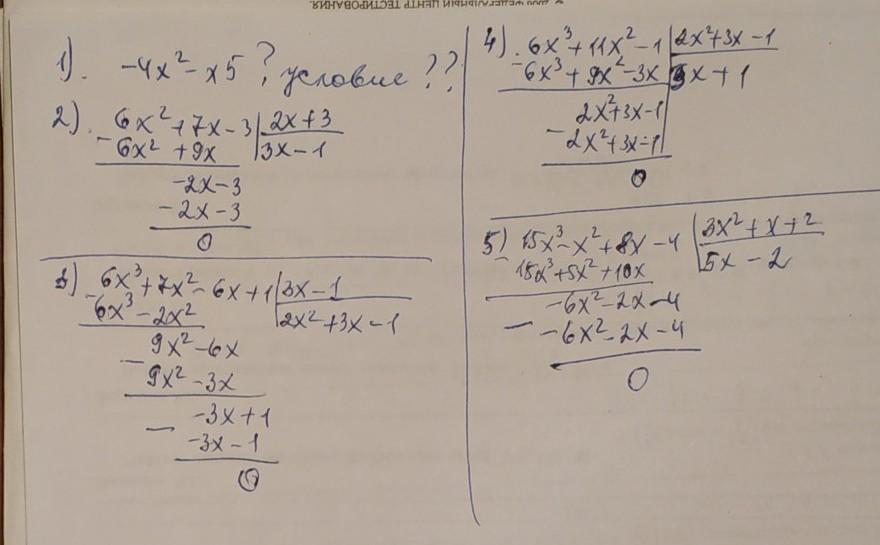 ФЕДЕРАЛЬНЫЙ ЦЕНТР ТЕСТИРОВАНИЯ.
1). -4x²-x5 ? условие ??
2). 6x²+7x-3 | 2x+3
- 6x² +9x | 3x-1
-2x-3
- 2x-3
0
3) 6x³+7x²-6x+1 | 3x-1
- 6x³-2x² | 2x²+3x-1
9x²-6x
- 9x²-3x
-3x+1
- -3x-1
0
4) 6x³+11x²-1 | 2x²+3x-1
- 6x³+9x²-3x | 3x+1
2x²+3x-1
- 2x²+3x-1
0
5) 15x³-x²+8x-4 | 3x²+x+2
- 15x³+5x²+10x | 5x-2
-6x²-2x-4
- -6x²-2x-4
0